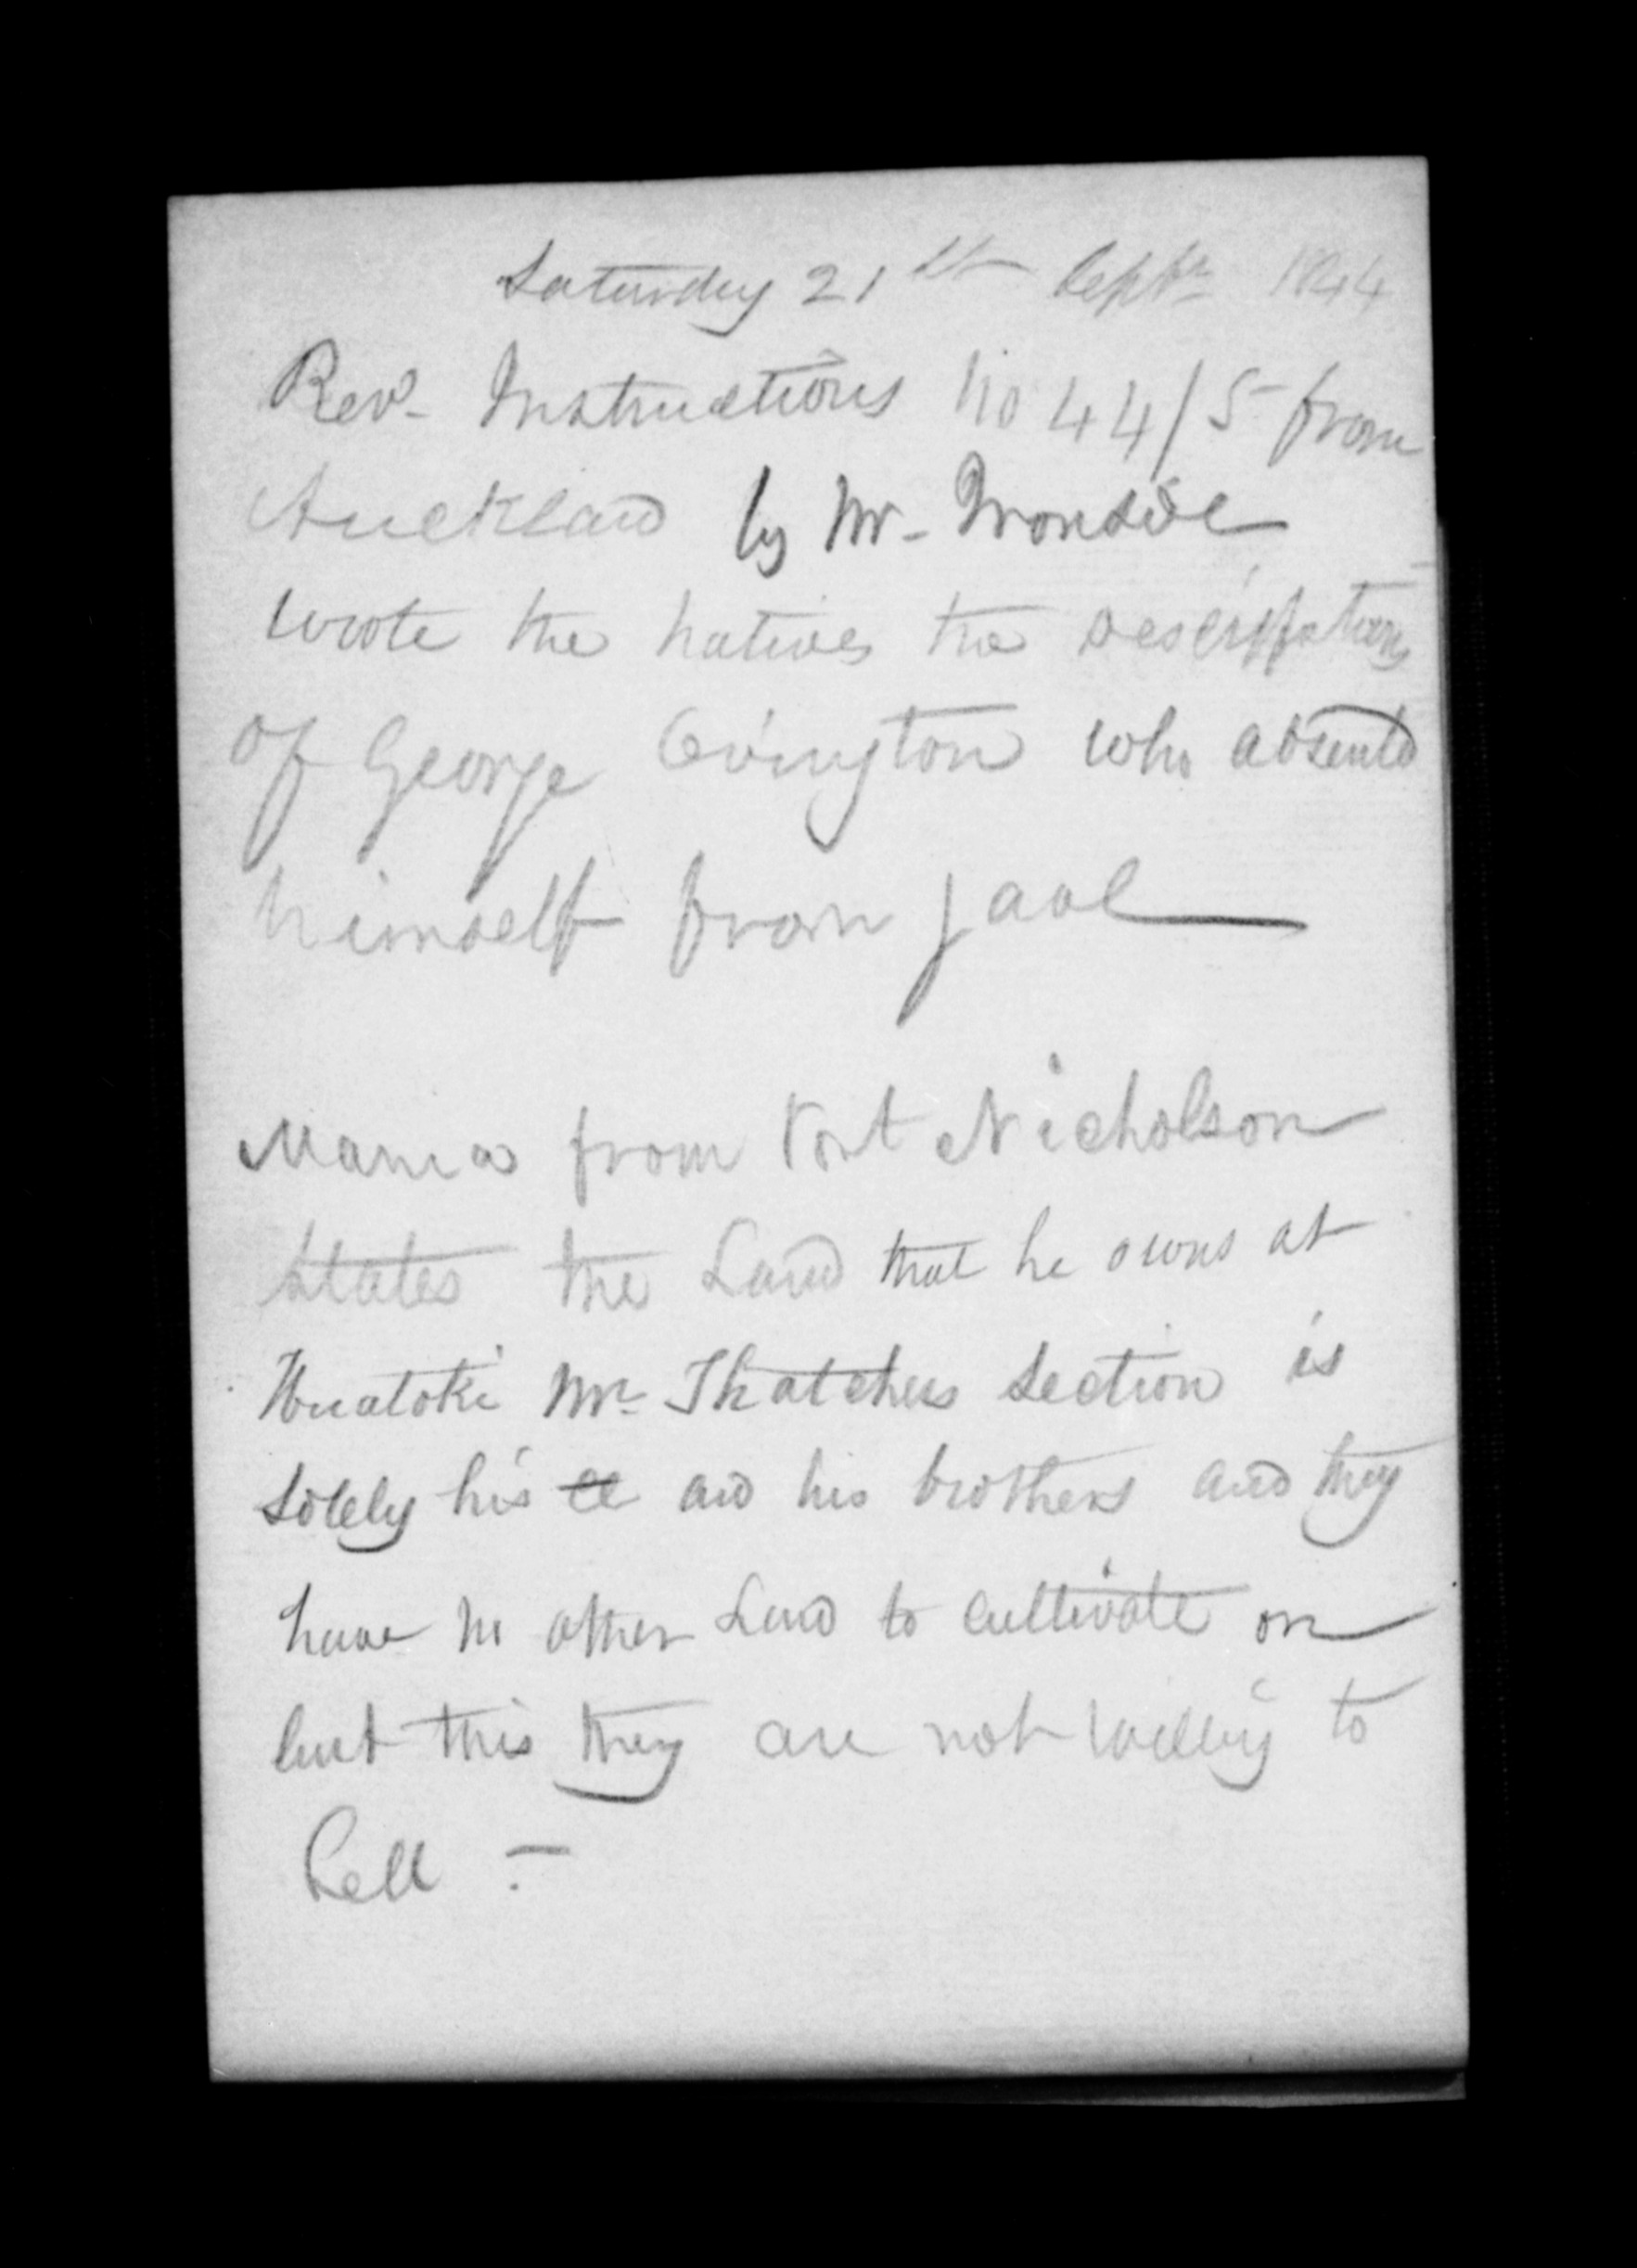 Saturday 21st Septr 1844
Recd. Instructions No 44/5 from
Auckland by Mr. Ironside
wrote the natives the description
of George Ovington who absented
himself from jaol
from Port Nicholson
states the Land that he owns at
Huatoki Mr. Thatchers Section is
Solely his and his brothers and they
have no other Land to cultivate on
but this they are not willing to
Sell -